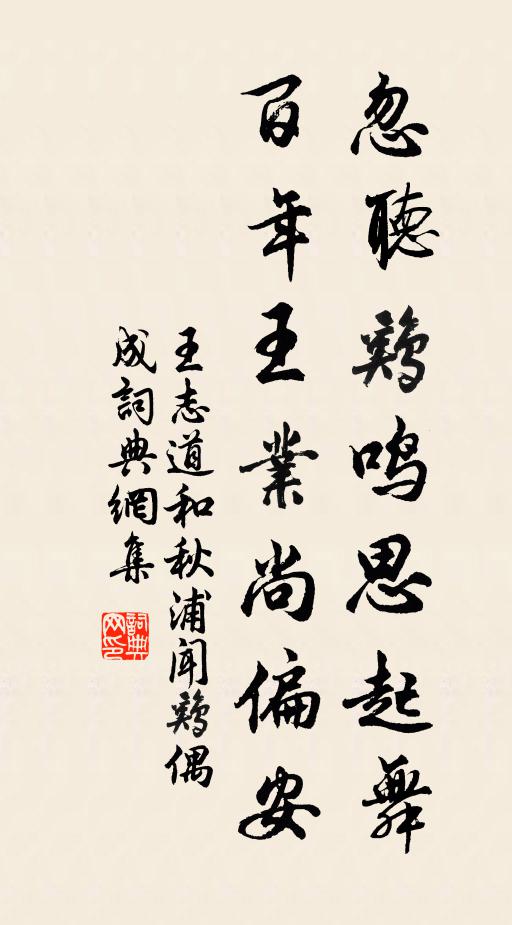 忽聽鷄鳴思起舞
百年王業尚偏安
王志道和秋浦闻鷄偶
成詞典網集
詞典网印